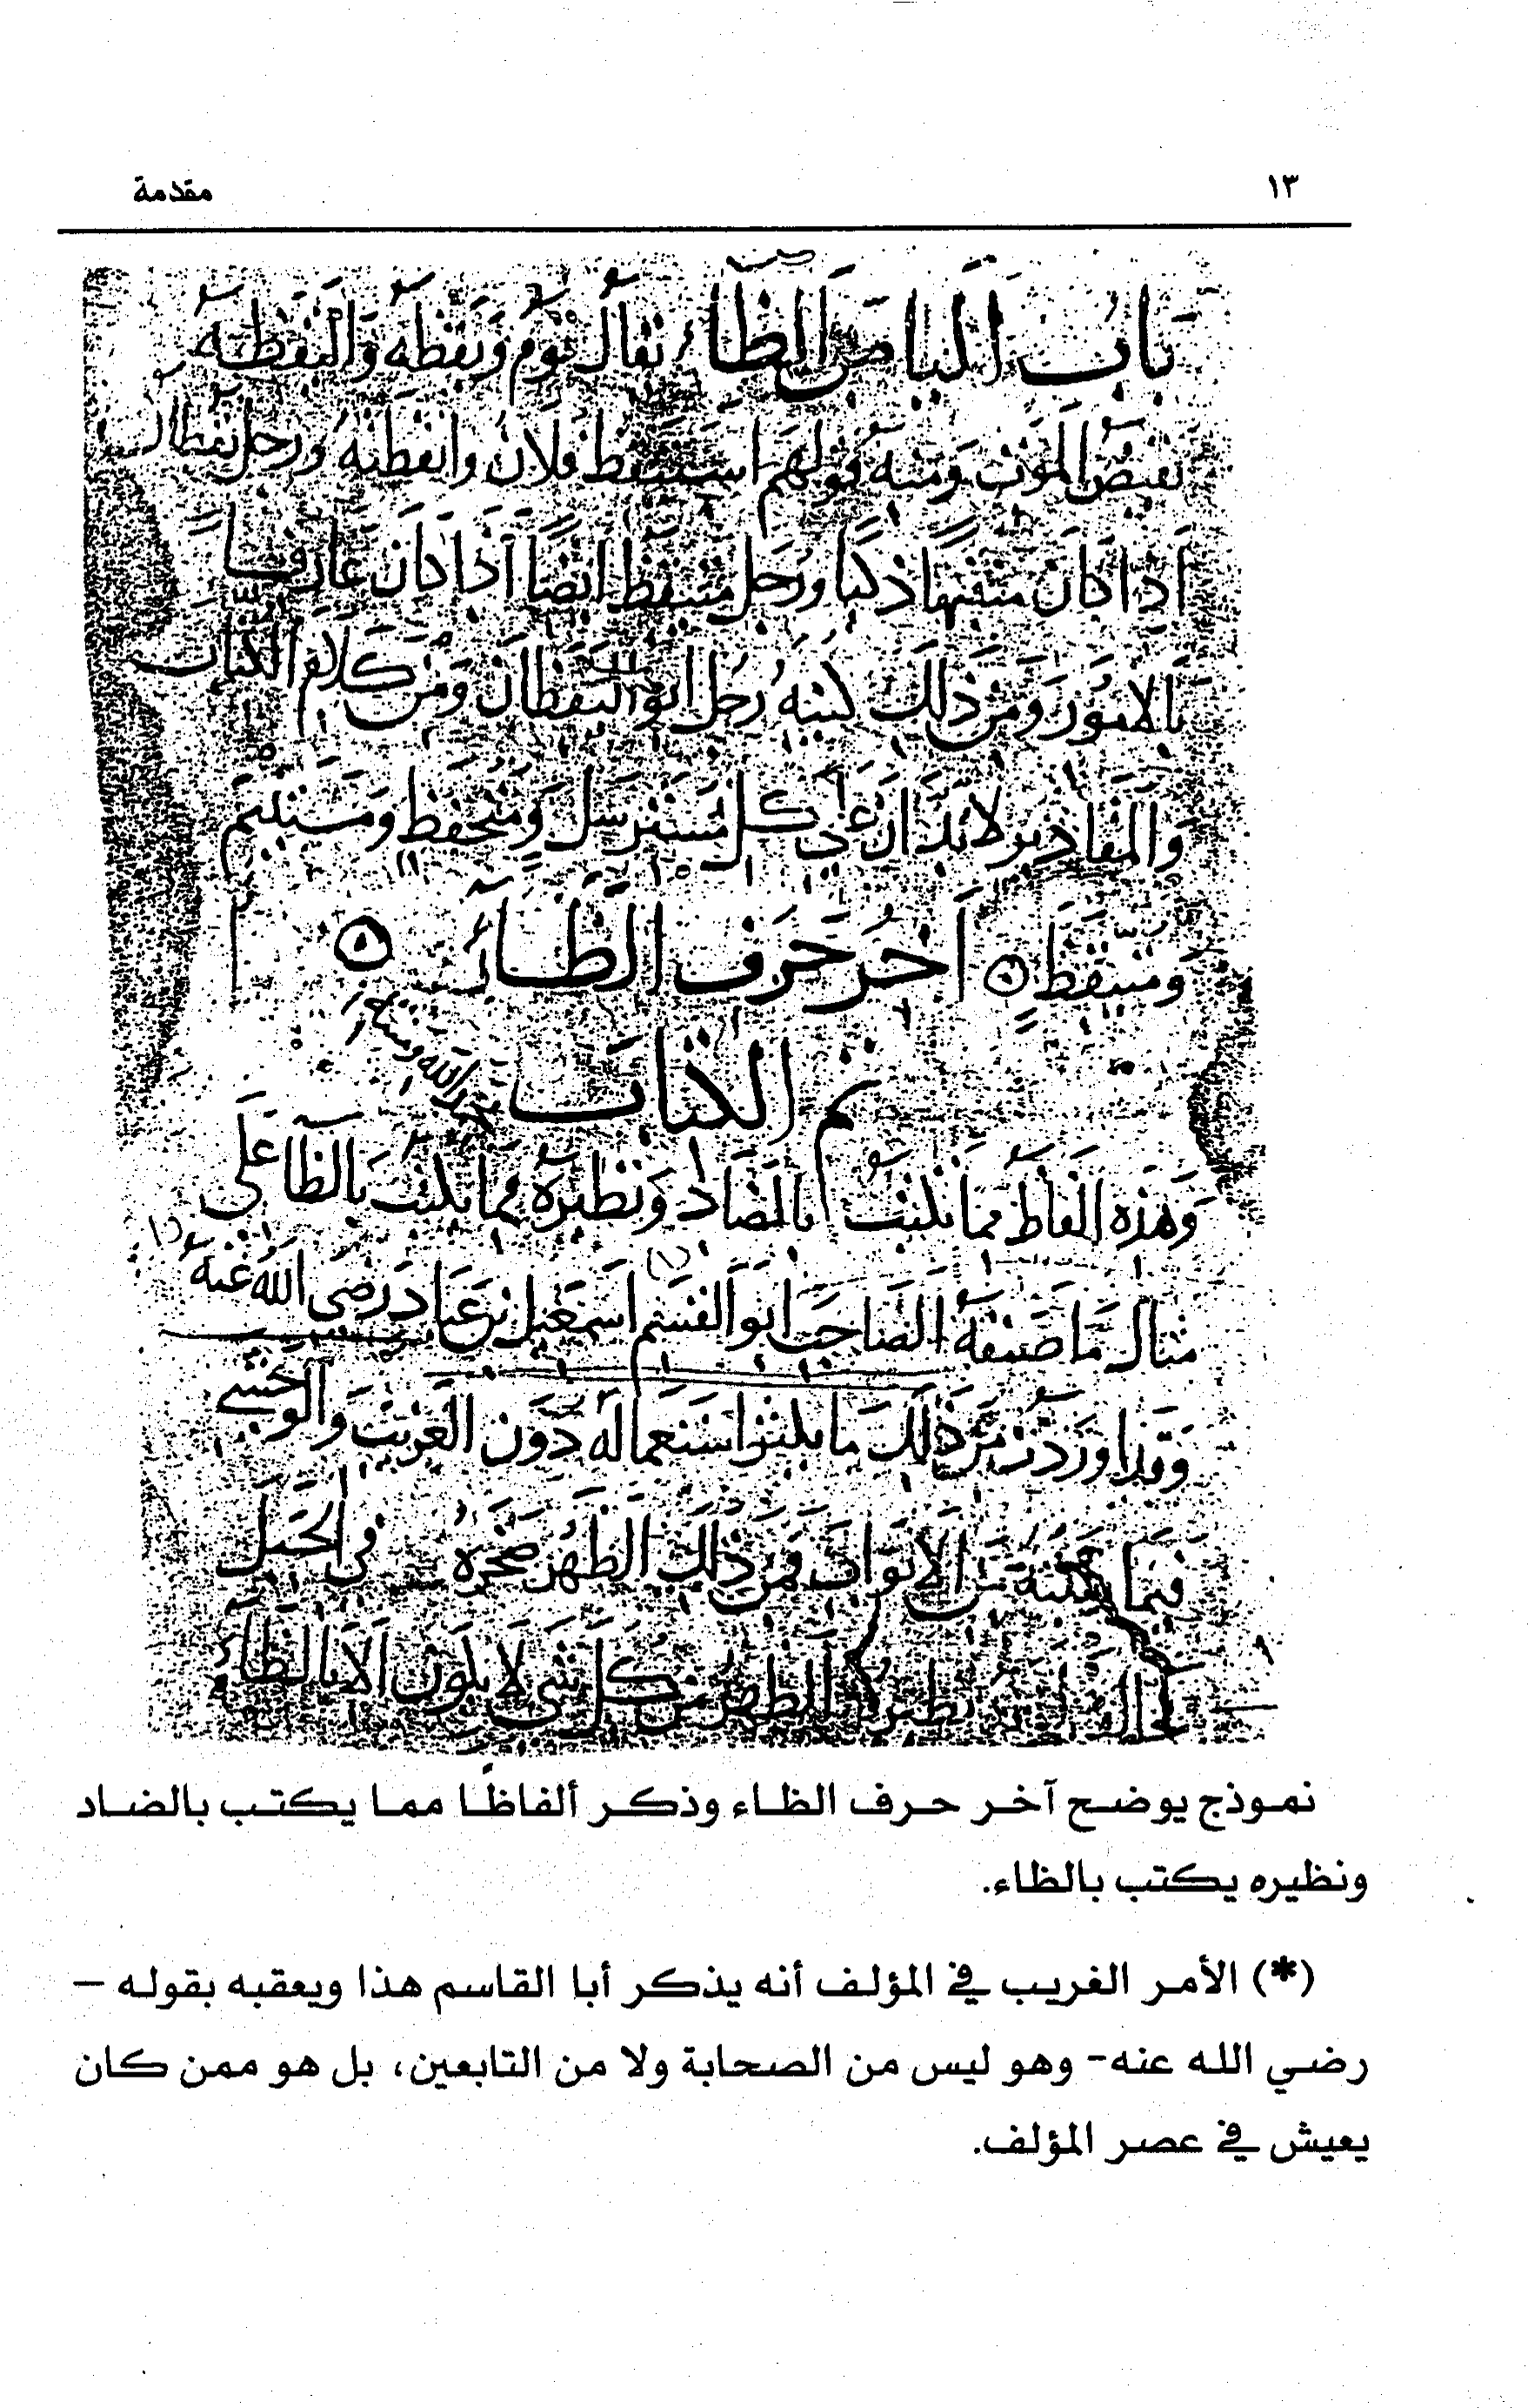 ١٣
مقدمة
باب الياء من الظاء يقال نوم ويقظه واليقظه
نقيض النوم ومنه قولهم استيقظ فلان وايقظته ورجل يقظان
اذا كان متفهما ذكيا ورجل متيقظ ايضا اذا كان عارفا
بالامور ومن ذلك كنية رجل ابو اليقظان ومن كلام الكتاب
والمقادير لا بد ان كل مسترسل ومتحفظ ومستنيم
ومتيقظ آخر حرف الظاء
تم الكتاب بحمد الله
وهذه الفاظ مما يكتب بالضاد ونظيره مما يكتب بالظا على
مثال ما صنفه الصاحب ابو القسم اسمعيل بن عباد رضي الله عنه
وقد اوردت من ذلك ما يكثر استعماله دون الغريب والوحشي
فيما من الابواب فمن ذلك الضهر صخرة في الجبل
نظيره الظهر من كل شي لا يكون الا بالظاء
نموذج يوضح آخر حرف الظاء وذكر ألفاظا مما يكتب بالضاد
ونظيره يكتب بالظاء.
(*) الأمر الغريب في المؤلف أنه يذكر أبا القاسم هذا ويعقبه بقوله –
رضي الله عنه- وهو ليس من الصحابة ولا من التابعين، بل هو ممن كان
يعيش في عصر المؤلف.